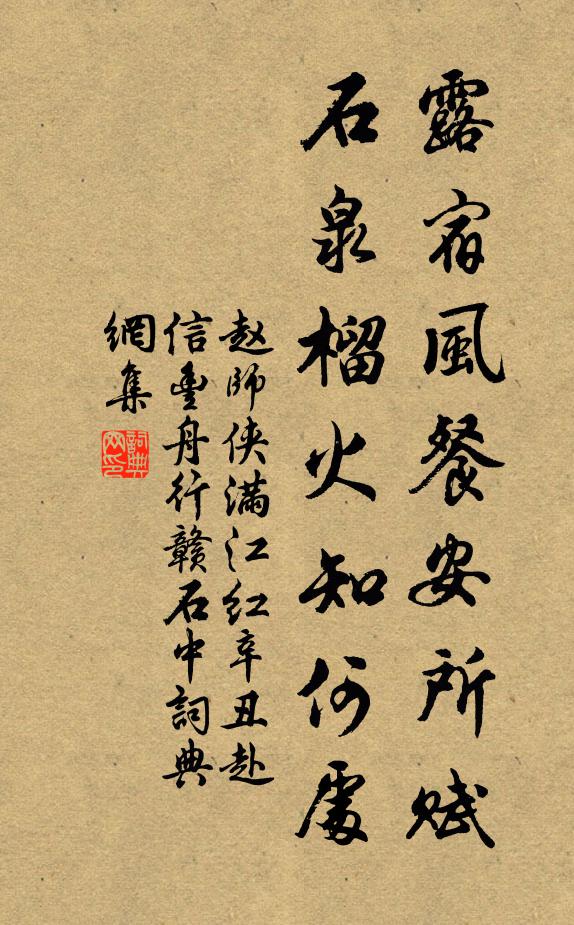 露宿風餐安所賦
石泉榴火知何處
赵師侠滿江红辛丑赴
信豐舟行赣石中詞典
網集
詞典網印